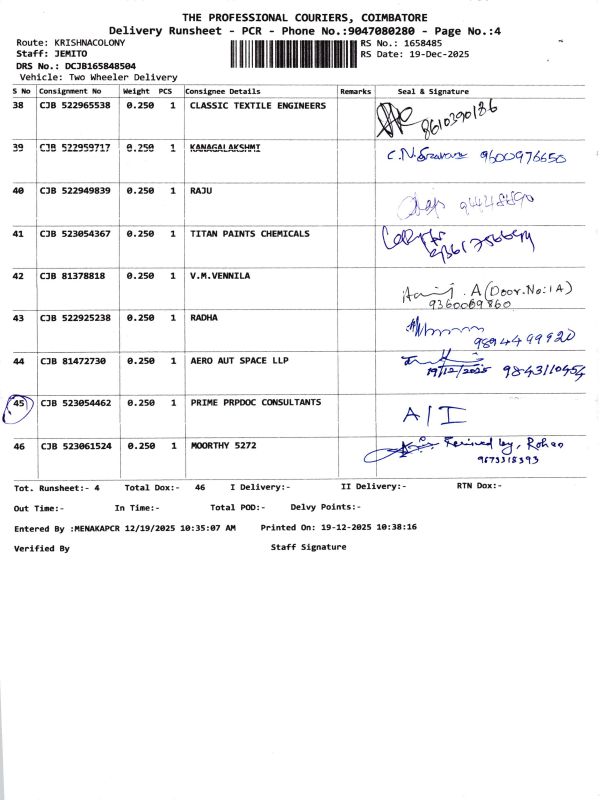 THE PROFESSIONAL COURIERS, COIMBATORE
Delivery Runsheet - PCR - Phone No.:9047080280 - Page No.:4
Route: KRISHNACOLONY RS No.: 1658485
Staff: JEMITO RS Date: 19-Dec-2025
DRS No.: DCJB165848504
Vehicle: Two Wheeler Delivery
S No Consignment No Weight PCS Consignee Details Remarks Seal & Signature
38 CJB 522965538 0.250 1 CLASSIC TEXTILE ENGINEERS 8610390186
39 CJB 522959717 0.250 1 KANAGALAKSHMI 9600976650
40 CJB 522949839 0.250 1 RAJU
41 CJB 523054367 0.250 1 TITAN PAINTS CHEMICALS
42 CJB 81378818 0.250 1 V.M.VENNILA A (Door.No:1A)
9360069860
43 CJB 522925238 0.250 1 RADHA
9894499920
44 CJB 81472730 0.250 1 AERO AUT SPACE LLP
19/12/2025 9843110454
45 CJB 523054462 0.250 1 PRIME PRPDOC CONSULTANTS A/I
46 CJB 523061524 0.250 1 MOORTHY 5272 by, Rohan
Tot. Runsheet:- 4 Total Dox:- 46 I Delivery:- II Delivery:- RTN Dox:-
Out Time:- In Time:- Total POD:- Delvy Points:-
Entered By :MENAKAPCR 12/19/2025 10:35:07 AM Printed On: 19-12-2025 10:38:16
Verified By Staff Signature